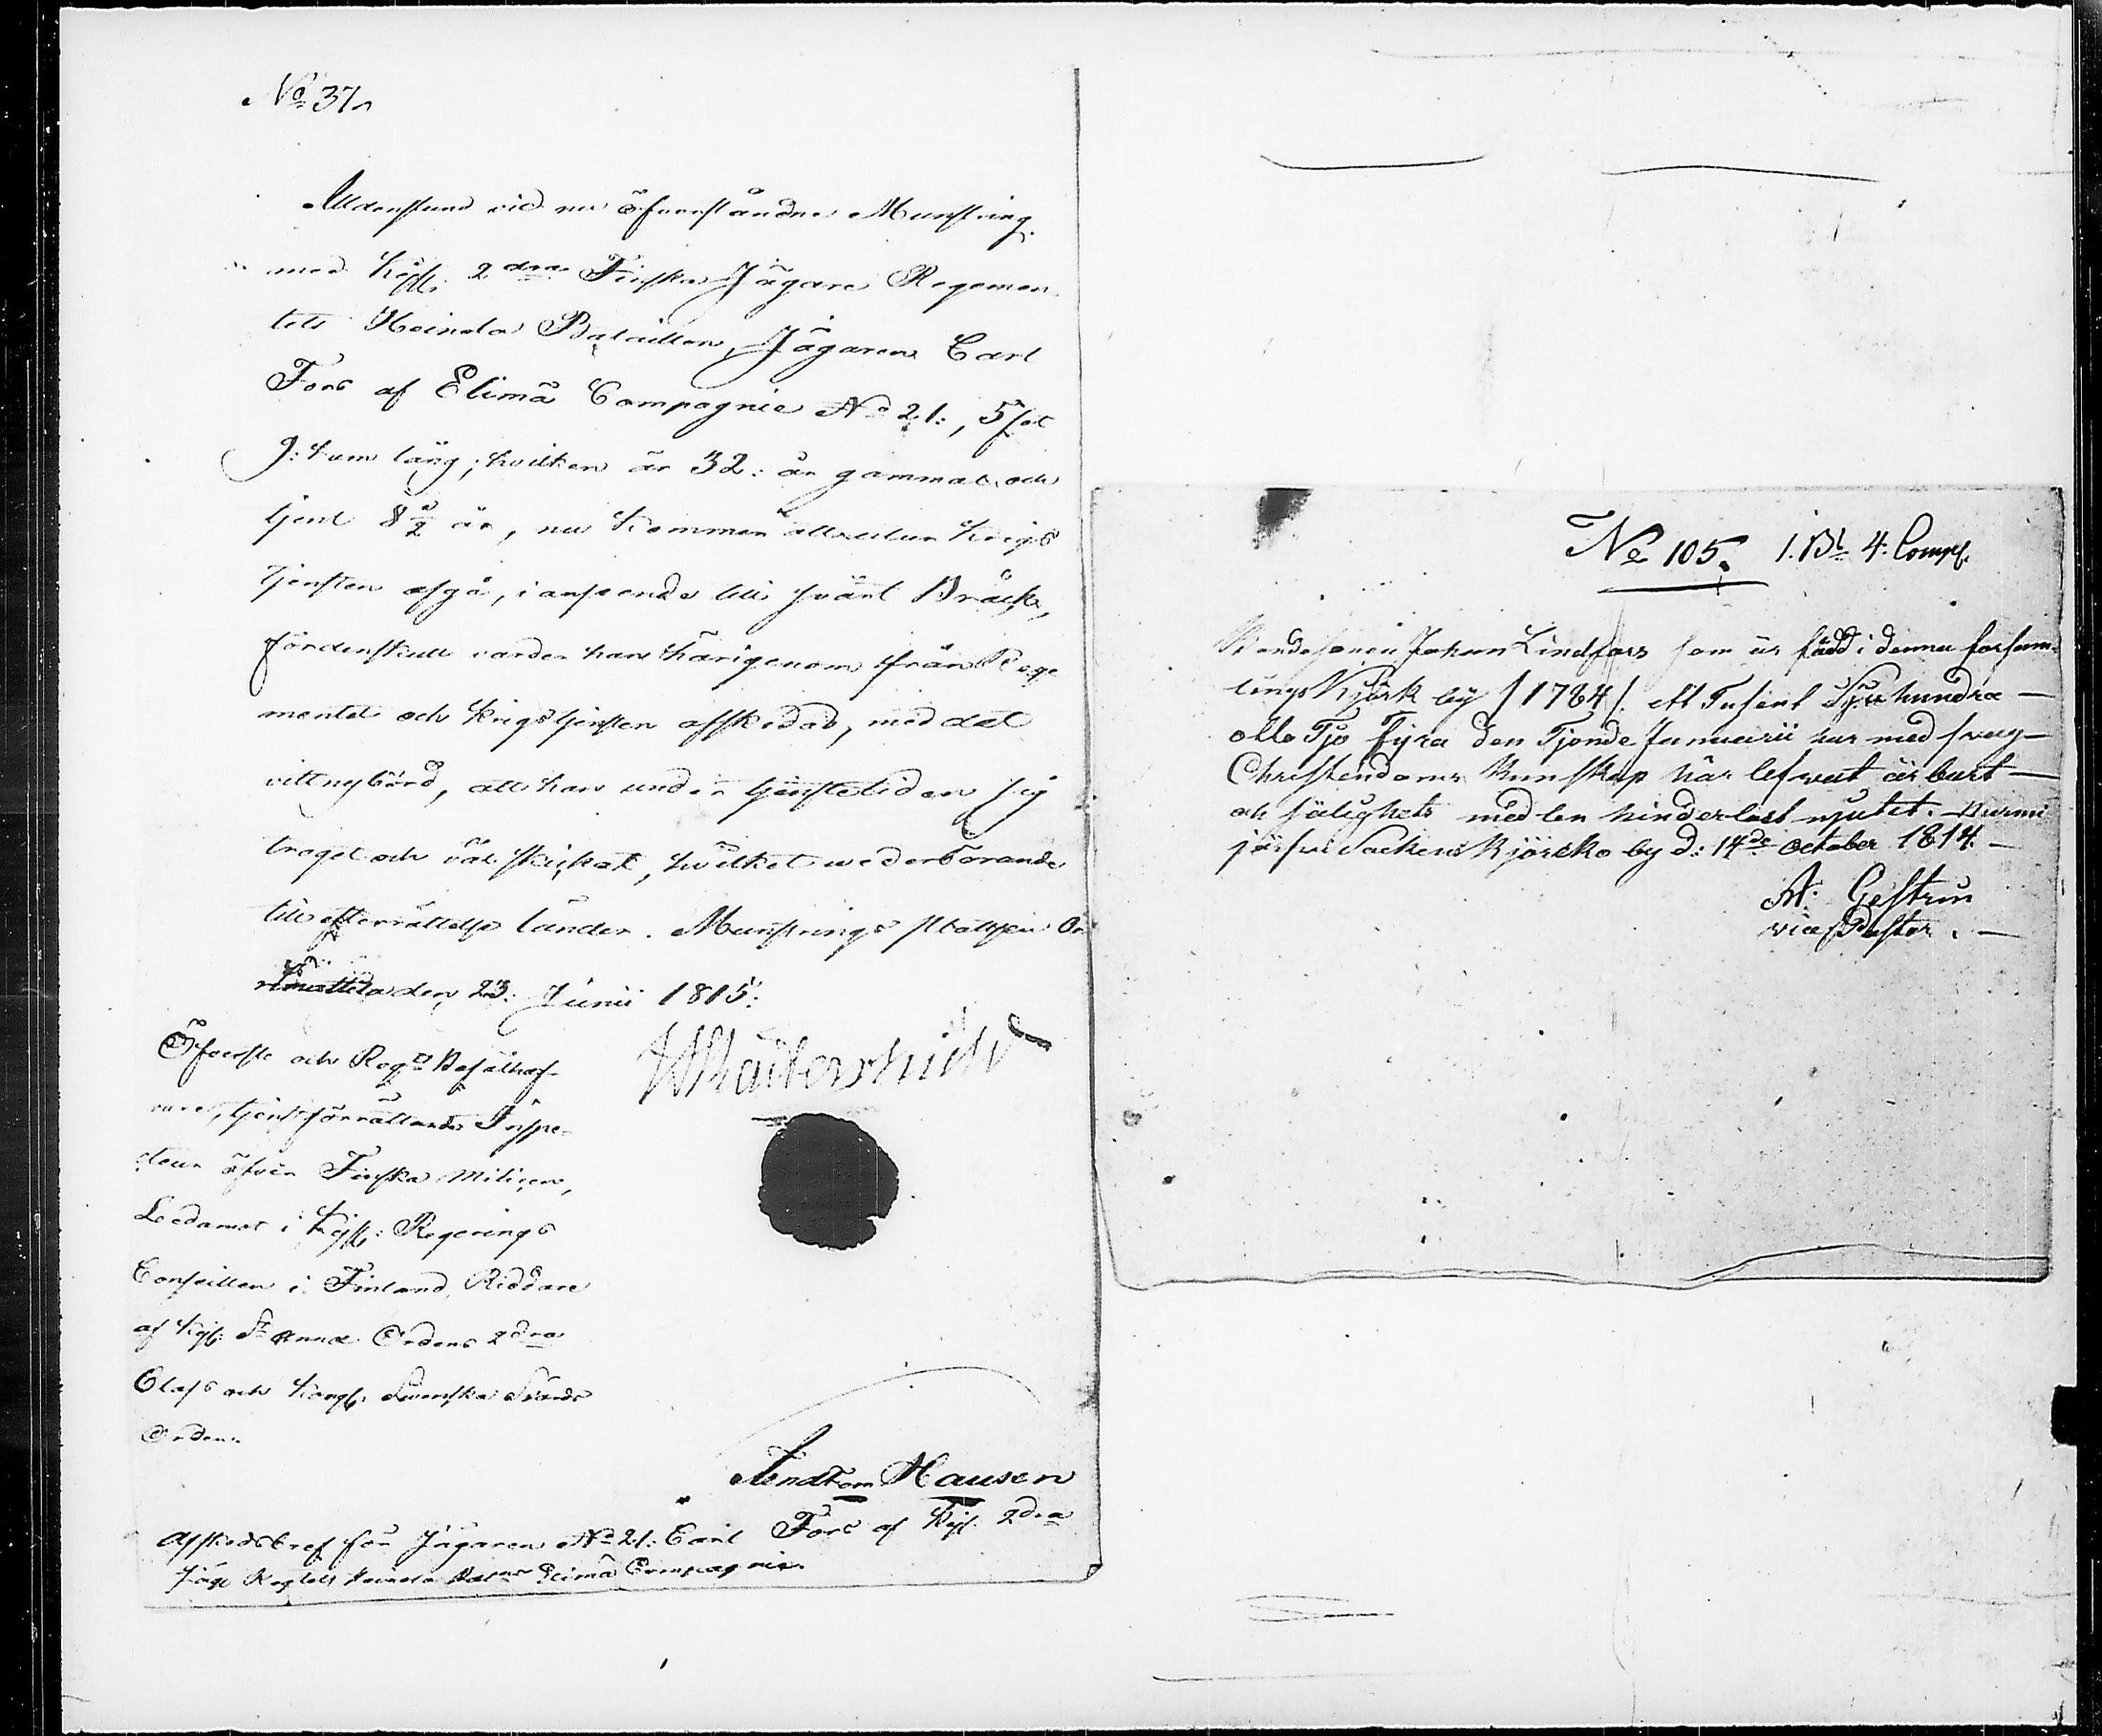 No 37.
Alldenstund vid nu öfverståndne Munstring
med Kejsl. 2dra Finska Jägare Regemen
tets Heinola Bataillon, Jägaren Carl
Fors af Elimä Compagnie No 21:, 5 fot
9: tum lång, hvilken är 32: år gammal och
tjent 8 1/2 år, nu kommer att utur Krigs
tjensten afgå, i anseende till svårt Bråck,
fördenskull varder han härigenom från Rege
mentet och Krigstjensten afskedad, med det
vittnesbörd, att han under tjenstetiden sig
troget och väl skickat, hvilket wederbörande
till efterrättelse länder. Munstrings platsen
den 23: Junii 1815:
Öfverste och Regts Befälhaf-
vare, tjenstförrättande Inspe-
cteur öfver Finska Milicen,
Ledamot i Kejsl: Regerings
Conseillen i Finland, Riddare
af Kejs: St Annæ Ordens 2dra
Class och Kongl. Svenska Svärds
Orden.
von Hausen
Afskedsbref för Jägaren No 21: Carl Fors af Kejs. 2dra
Jäge Regtets Heinola Batns Elimä Compagnie.
No 105. 1. Bt 4: Comp.
Bondesonen Johan Lindfors som är född i denna församl
lings Kjörk by / 1784 /. ett Tusent Sjuhundra
otto Tjo Fyra den Tjonde Januarii har med svag
Christendoms Kunskap här lefvat ärbart
och salighets medlen hinderlöst njutit. Nurmi
järfvi Sockens Kjörcko by d: 14de October 1814.
A. Gestrin
vice Pastor.